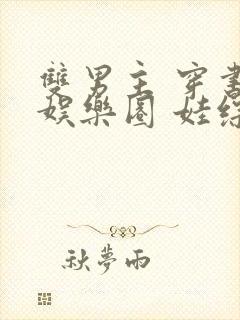 雙男主 穿書
娛樂圈 娃綜
秋夢雨